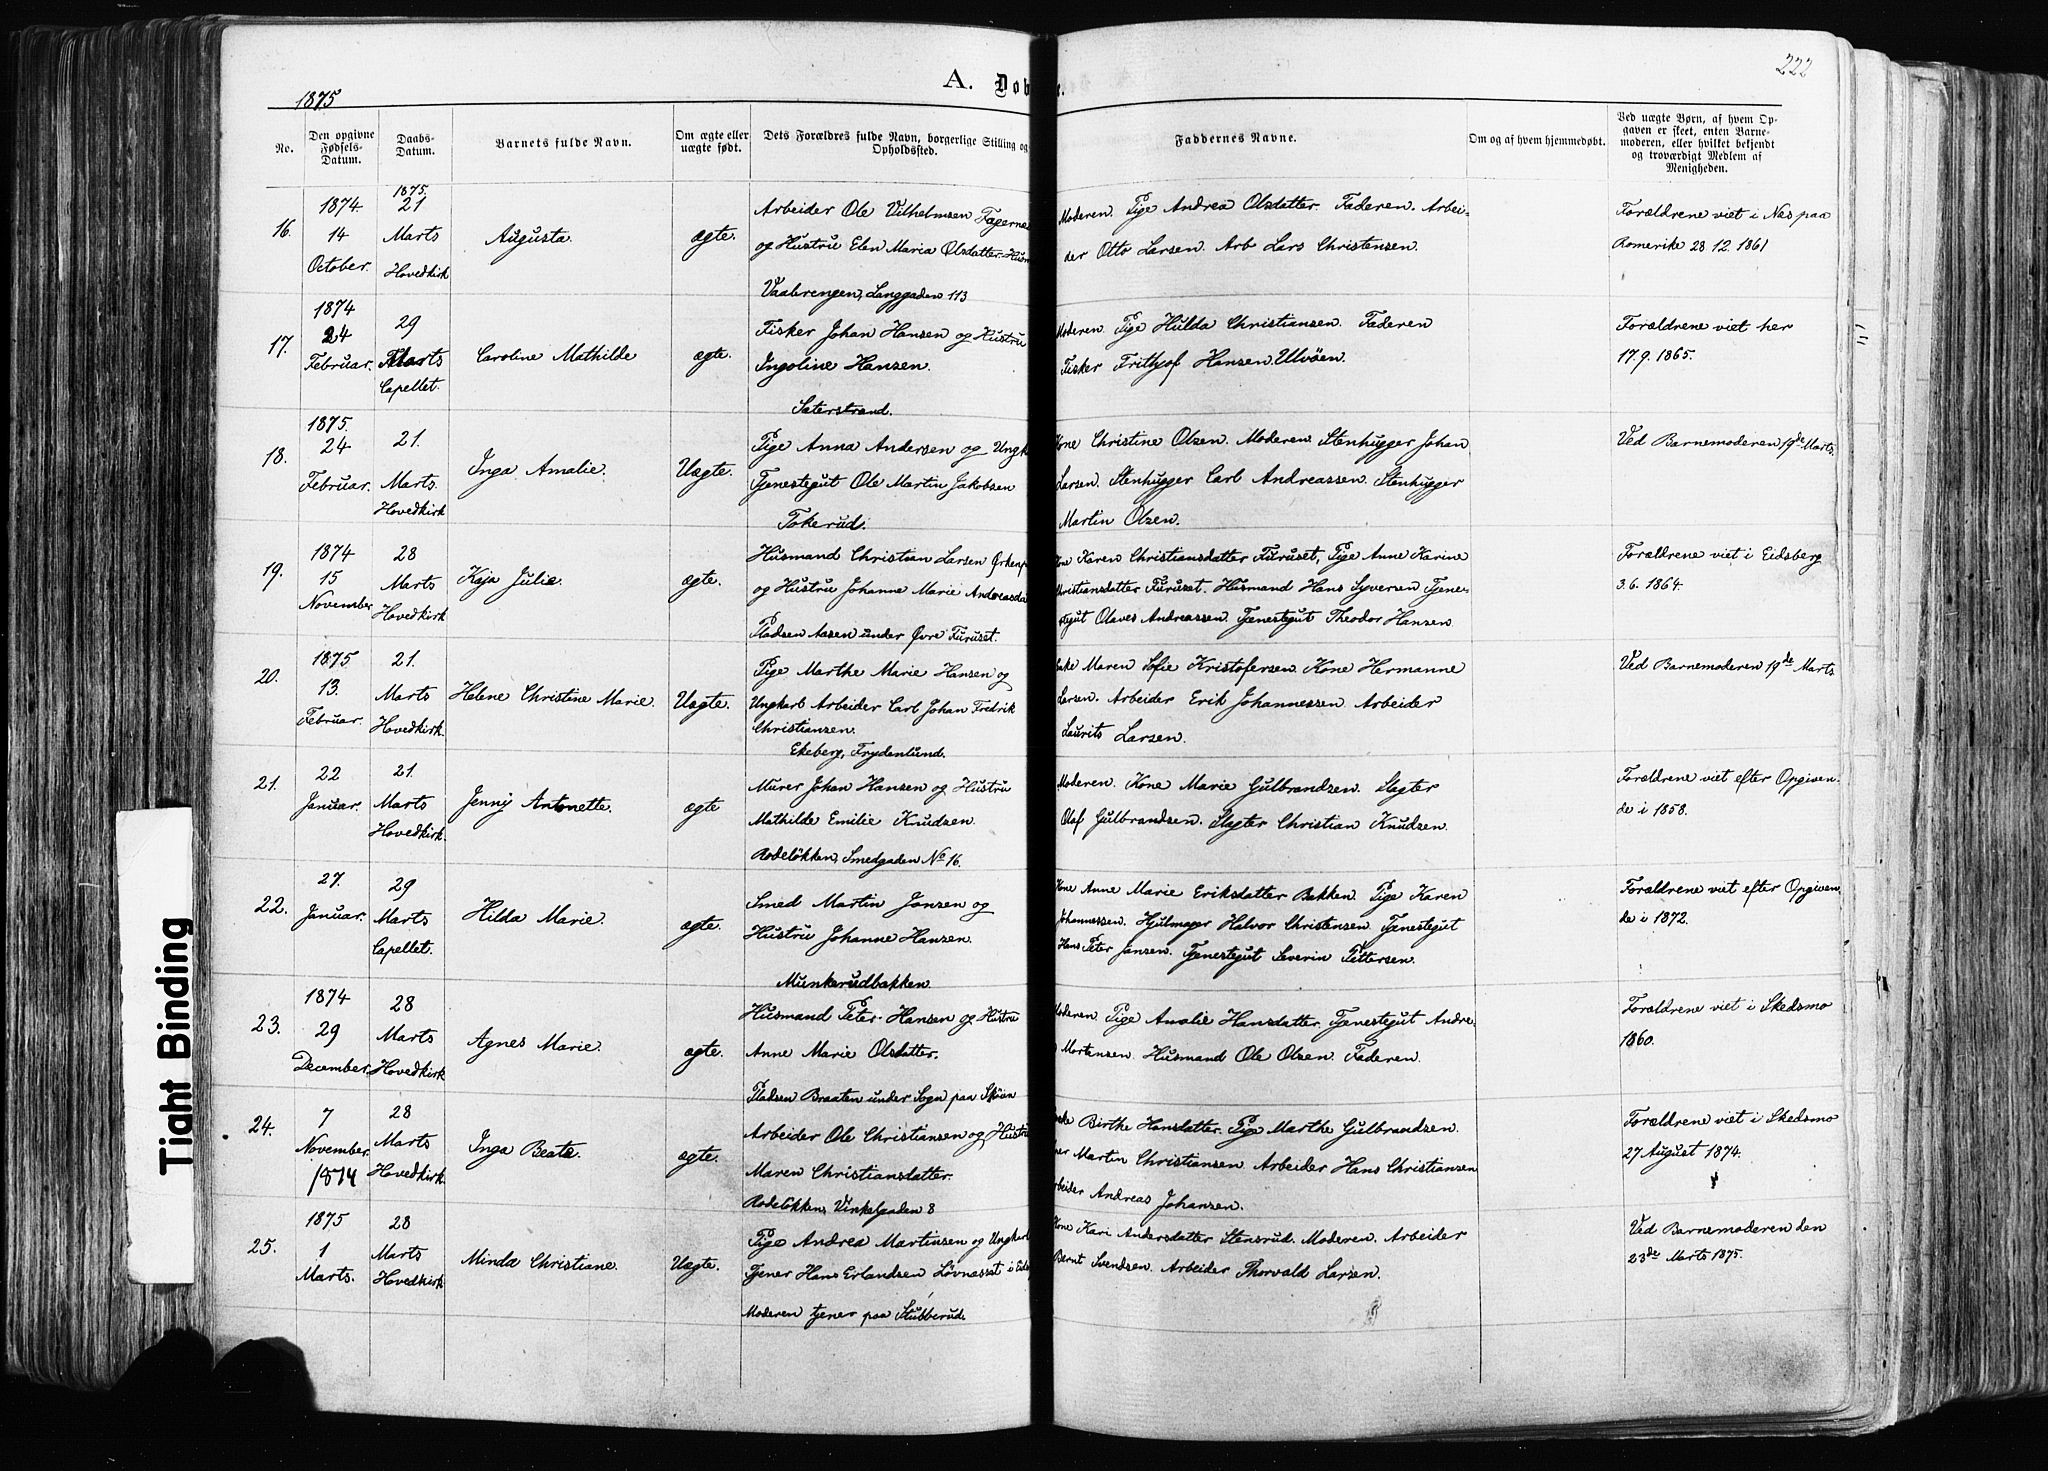 222
1875
A. Døb e.
No.
Den opgivne Fødsels-Datum.
Daabs-Datum.
Barnets fulde Navn.
Om ægte eller uægte født.
Dets Forældres fulde Navn, borgerlige Stilling og Opholdssted.
Faddernes Navne.
Om og af hvem hjemmedøbt.
Ved uægte Børn, af hvem Opgaven er skeet, enten Barnemoderen, eller hvilket bekjendt og troværdigt Medlem af Menigheden.
16.
1874. 14 October.
1875. 21 Marts Hovedkirk
Augusta.
ægte.
Arbeider Ole Vilhelmsen Fagernes
og Hustru Elen Maria Olsdatter.
Vaalerengen, Langgaden 113
Moderen. Pige Andrea Olsdatter. Faderen. Arbei-
der Otto Larsen. Arb Lars Christensen.
Forældrene viet i Nes paa
Romerike 28.12.1861
17.
1874 24 Februar.
29 Marts Capellet.
Caroline Mathilde
ægte.
Fisker Johan Hansen og Hustru
Ingoline Hansen.
Saterstrand.
Moderen. Pige Hulda Christiansen. Faderen
Fisker Frithjof Hansen. Ulvöen.
Forældrene viet her
17.9.1865.
18.
1875. 24 Februar.
21. Marts. Hovedkirk
Inga Amalie.
Uægte.
Pige Anna Andersen og Ungk
Tjenestegut Ole Martin Jakobsen
Tokerud.
Kone Christine Olsen. Moderen. Stenhugger Johan
Larsen. Stenhugger Carl Andreassen. Stenhugger
Martin Olsen.
Ved Barnemoderen 19de Marts.
19.
1874 15 November
28 Marts Hovedkirk
Kaja Julie.
ægte.
Husmand Christian Larsen
og Hustru Johanne Marie Andreasda
Pladsen Aasen under Øvre Furuset.
Kone Karen Christiansdatter Furuset, Pige Anne Karine
Christiansdatter Furuset. Husmand Hans Syversen Tjene-
stegut Olaves Andreassen. Tjenestegut Theodor Hansen
Forældrene viet i Eidsberg
3.6.1864.
20.
1875 13. Februar.
21. Marts Hovedkirk.
Helene Christine Marie.
Uægte.
Pige Marthe Marie Hansen og
Ungkarl Arbeider Carl Johan Fredrik
Christiansen.
Ekeberg, Frydenlund.
Enke Maren Sofie Kristofersen. Kone Hermanne
Larsen. Arbeider Erik Johannessen. Arbeider
Laurits Larsen.
Ved Barnemoderen 19de Marts.
21.
22 Januar.
21. Marts Hovedkirk.
Jenny Antonette.
ægte
Murer Johan Hansen og Hustru
Mathilde Emilie Knudsen.
Rodeløkken, Smedgaden No 16.
Moderen. Kone Marie Gulbrandsen. Slagter
Olaf Gulbrandsen. Slagter Christian Knudsen.
Forældrene viet efter Opgiven-
de i 1858.
22.
27. Januar.
29 Marts Capellet.
Hilda Marie.
ægte.
Smed Martin Jansen og
Hustru Johanne Hansen.
Munkerudbakken
Kone Anne Marie Eriksdatter Bakken. Pige Karen
Johannessen. Hjulmager Halvor Christensen. Tjenestegut
Hans Peter Jansen. Tjenestegut Severin Pettersen.
Forældrene viet efter Opgiven-
de i 1872.
23.
1874 29 December.
28 Marts Hovedkirk
Agnes Marie.
ægte.
Husmand Peter Hansen og Hustru
Anne Marie Olsdatter.
Pladsen Braaten under Sogn paa Skøien
Moderen. Pige Amalie Hansdatter. Tjenestegut Andre-
Mortensen. Husmand Ole Olsen. Faderen.
Forældrene viet i Skedsmo
1860.
24.
7 November 1874
28 Marts Hovedkirk
Inga Beate.
ægte.
Arbeider Ole Christiansen og Hustru
Maren Christiansdatter.
Rodeløkken, Vinkelgaden 8
Birthe Hansdatter. Pige Marthe Gulbrandsen.
Martin Christiansen. Arbeider Hans Christiansen
Arbeider Andreas Johansen.
Forældrene viet i Skedsmo
27 August 1874.
25.
1875 1 Marts.
28 Marts Hovedkirk
Minda Christiane.
Uægte.
Pige Andrea Martinsen og Ungkarl
Tjener Hans Erlandsen Løvnesset i Eids
Moderen tjener paa Stubberud.
Kone Kari Andersdatter Stensrud. Moderen. Arbeider
Bernt Svendsen. Arbeider Thorvald Larsen.
Ved Barnemoderen den
23de Marts 1875.
Tight Binding